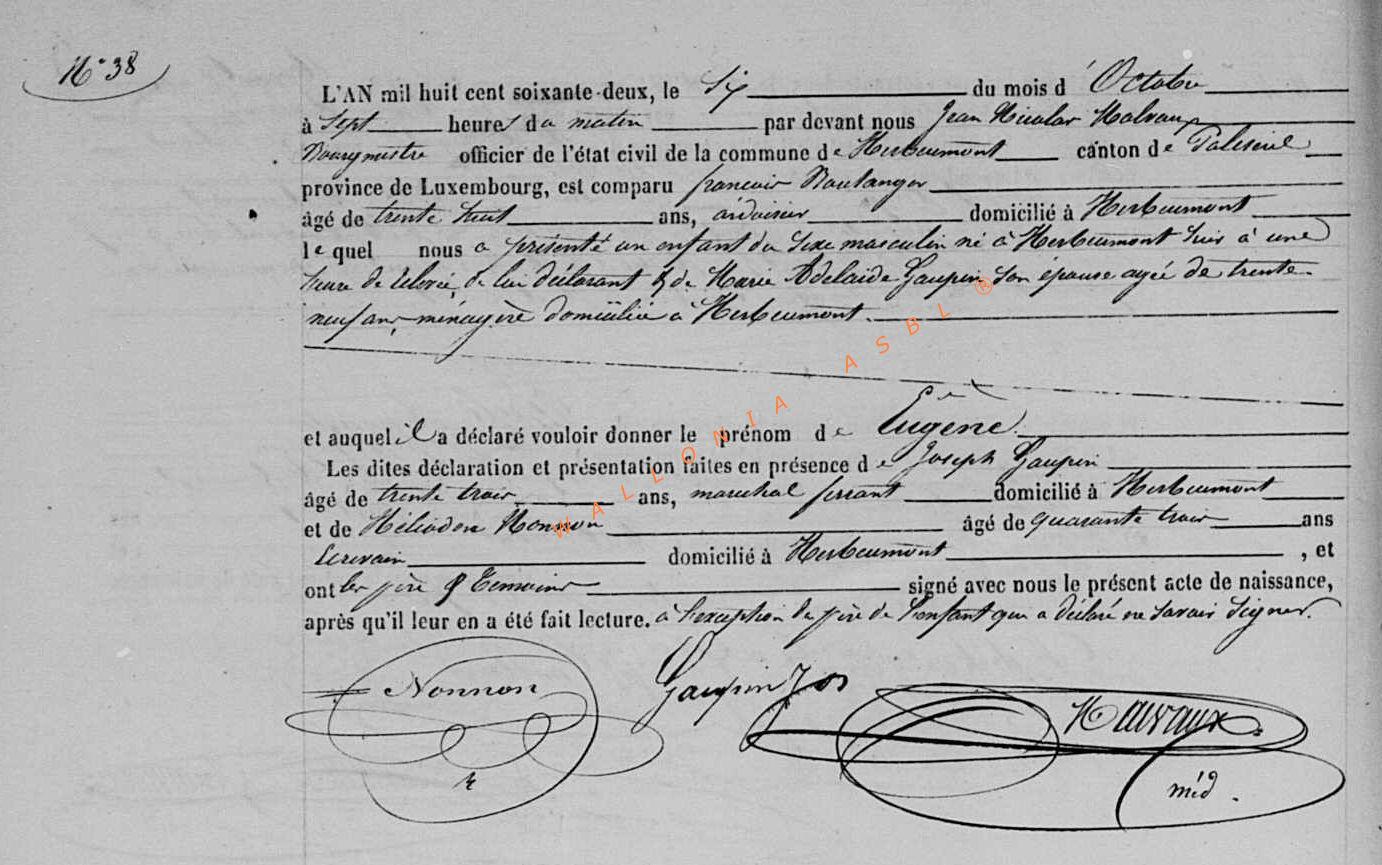 N° 38
L'AN mil huit cent soixante-deux, le Six du mois d' Octobre
à Sept heures du matin par devant nous Jean Nicolas Halvaux
Bourgmestre officier de l'état civil de la commune de Herbeumont canton de Paliseul
province de Luxembourg, est comparu francois Boulanger
âgé de trente huit ans, ardoisier domicilié à Herbeumont
le quel nous a présenté un enfant du sexe masculin né à Herbeumont hier à une
heure de relevée, de lui déclarant & de Marie Adelaide Gaupin son épouse agée de trente-
neuf ans, ménagère domiciliée à Herbeumont.
et auquel il a déclaré vouloir donner le prénom de Eugène
Les dites déclaration et présentation faites en présence de Joseph Gaupin
âgé de trente trois ans, marechal ferrant domicilié à Herbeumont
et de Héliodore Nonnon âgé de quarante trois ans
Ecrivain domicilié à Herbeumont , et
ont les père & Temoins signé avec nous le présent acte de naissance,
après qu'il leur en a été fait lecture. à l'exception du père de l'enfant qui a déclaré ne savoir signer.
Nonnon Gaupin Jos Halvaux
WALLONIA ASBL ®